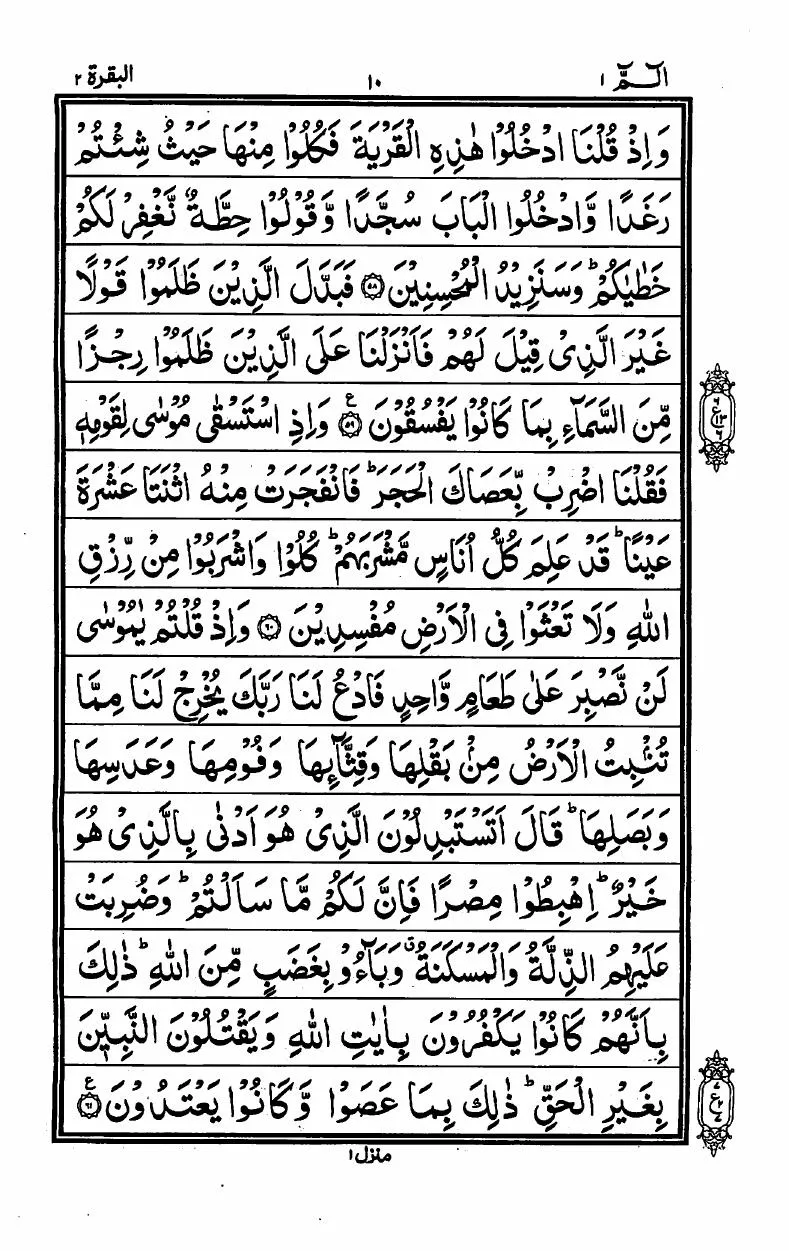 الٓـمّٓ ١
١٠
البقرة ٢
وَاِذْ قُلْنَا ادْخُلُوْا هٰذِهِ الْقَرْيَةَ فَكُلُوْا مِنْهَا حَيْثُ شِئْتُمْ
رَغَدًا وَّادْخُلُوا الْبَابَ سُجَّدًا وَّقُوْلُوْا حِطَّةٌ نَّغْفِرْ لَكُمْ
خَطٰيٰكُمْ ؕ وَسَنَزِيْدُ الْمُحْسِنِيْنَ ۝٥٨ فَبَدَّلَ الَّذِيْنَ ظَلَمُوْا قَوْلًا
غَيْرَ الَّذِىْ قِيْلَ لَهُمْ فَاَنْزَلْنَا عَلَى الَّذِيْنَ ظَلَمُوْا رِجْزًا
مِّنَ السَّمَآءِ بِمَا كَانُوْا يَفْسُقُوْنَ ۝٥٩ ع وَاِذِ اسْتَسْقٰى مُوْسٰى لِقَوْمِهٖ
فَقُلْنَا اضْرِبْ بِّعَصَاكَ الْحَجَرَ ؕ فَانْفَجَرَتْ مِنْهُ اثْنَتَا عَشْرَةَ
عَيْنًا ؕ قَدْ عَلِمَ كُلُّ اُنَاسٍ مَّشْرَبَهُمْ ؕ كُلُوْا وَاشْرَبُوْا مِنْ رِّزْقِ
اللّٰهِ وَلَا تَعْثَوْا فِى الْاَرْضِ مُفْسِدِيْنَ ۝٦٠ وَاِذْ قُلْتُمْ يٰمُوْسٰى
لَنْ نَّصْبِرَ عَلٰى طَعَامٍ وَّاحِدٍ فَادْعُ لَنَا رَبَّكَ يُخْرِجْ لَنَا مِمَّا
تُنْۢبِتُ الْاَرْضُ مِنْۢ بَقْلِهَا وَقِثَّآئِهَا وَفُوْمِهَا وَعَدَسِهَا
وَبَصَلِهَا ؕ قَالَ اَتَسْتَبْدِلُوْنَ الَّذِىْ هُوَ اَدْنٰى بِالَّذِىْ هُوَ
خَيْرٌ ؕ اِهْبِطُوْا مِصْرًا فَاِنَّ لَكُمْ مَّا سَاَلْتُمْ ؕ وَضُرِبَتْ
عَلَيْهِمُ الذِّلَّةُ وَالْمَسْكَنَةُ ۗ وَبَآءُوْ بِغَضَبٍ مِّنَ اللّٰهِ ؕ ذٰلِكَ
بِاَنَّهُمْ كَانُوْا يَكْفُرُوْنَ بِاٰيٰتِ اللّٰهِ وَيَقْتُلُوْنَ النَّبِيّٖنَ
بِغَيْرِ الْحَقِّ ؕ ذٰلِكَ بِمَا عَصَوْا وَّكَانُوْا يَعْتَدُوْنَ ۝٦١ ع
منزل ١